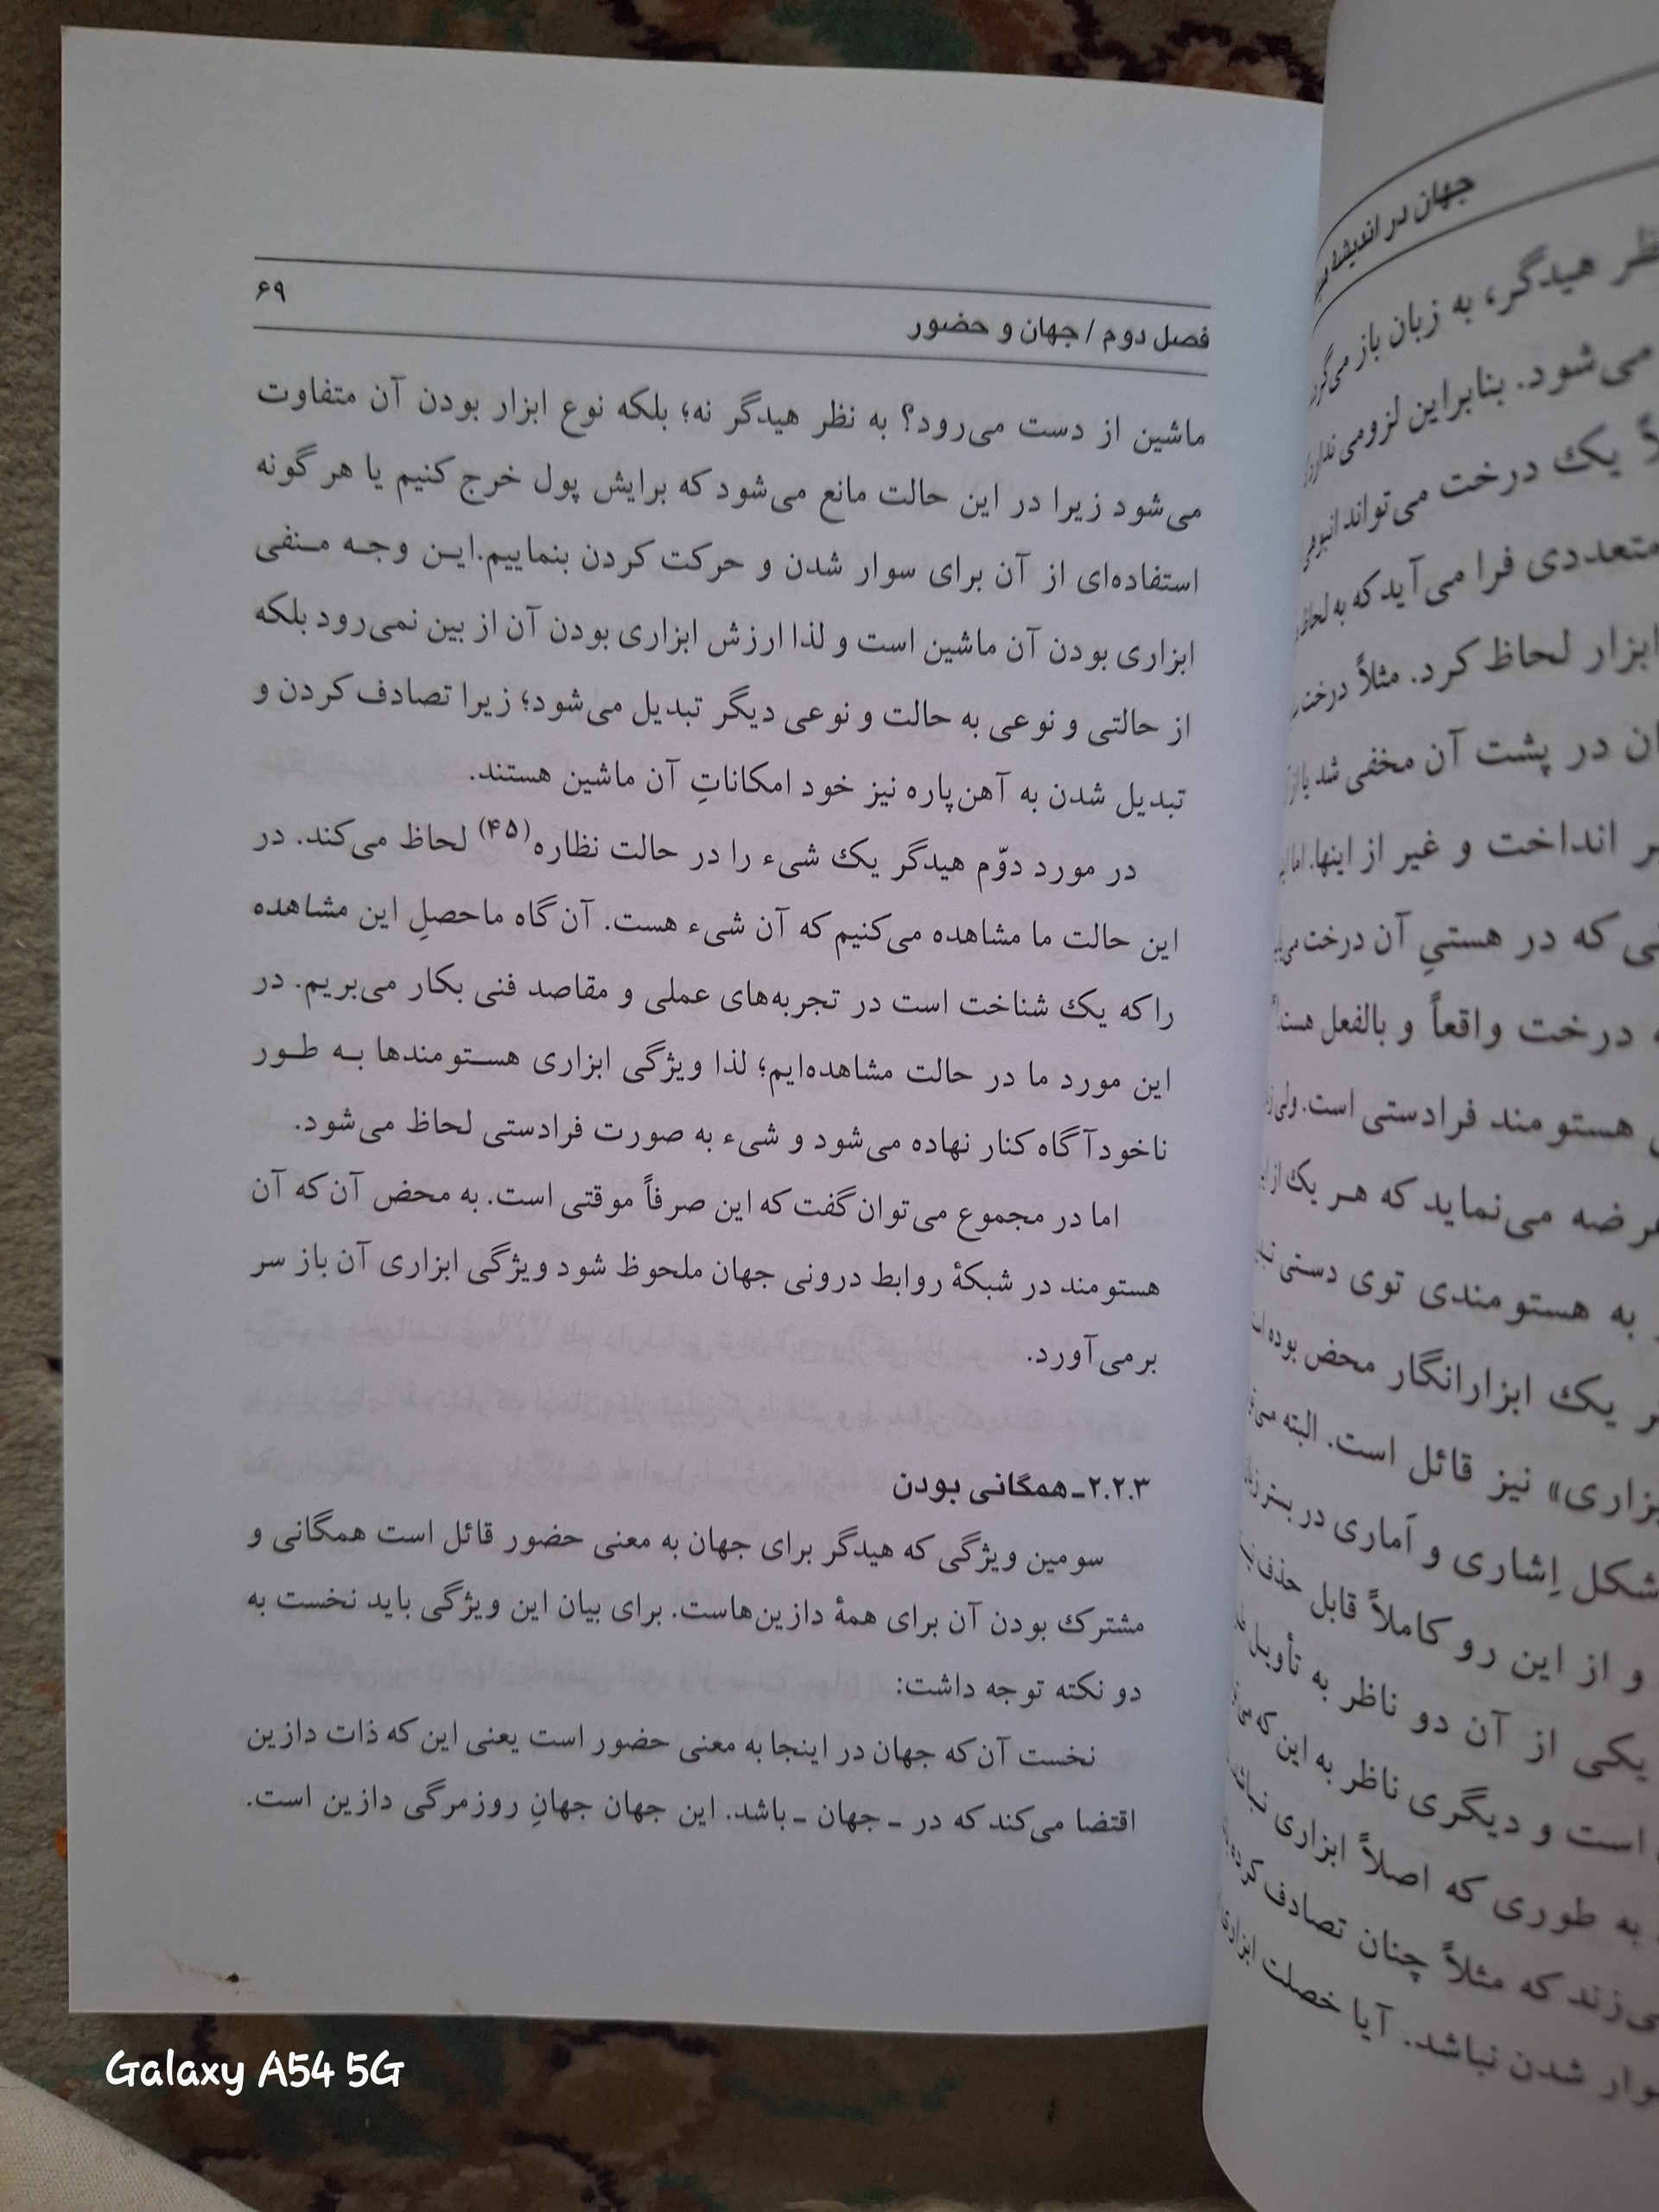 فصل دوم / جهان و حضور
۶۹
ماشین از دست می‌رود؟ به نظر هیدگر نه؛ بلکه نوع ابزار بودن آن متفاوت
می‌شود زیرا در این حالت مانع می‌شود که برایش پول خرج کنیم یا هر گونه
استفاده‌ای از آن برای سوار شدن و حرکت کردن بنماییم.این وجه منفی
ابزاری بودن آن ماشین است و لذا ارزش ابزاری بودن آن از بین نمی‌رود بلکه
از حالتی و نوعی به حالت و نوعی دیگر تبدیل می‌شود؛ زیرا تصادف کردن و
تبدیل شدن به آهن‌پاره نیز خود امکاناتِ آن ماشین هستند.
در مورد دوّم هیدگر یک شیء را در حالت نظاره(۴۵) لحاظ می‌کند. در
این حالت ما مشاهده می‌کنیم که آن شیء هست. آن گاه ماحصلِ این مشاهده
را که یک شناخت است در تجربه‌های عملی و مقاصد فنی بکار می‌بریم. در
این مورد ما در حالت مشاهده‌ایم؛ لذا ویژگی ابزاری هستومندها به طور
ناخودآگاه کنار نهاده می‌شود و شیء به صورت فرادستی لحاظ می‌شود.
اما در مجموع می‌توان گفت که این صرفاً موقتی است. به محض آن که آن
هستومند در شبکهٔ روابط درونی جهان ملحوظ شود ویژگی ابزاری آن باز سر
برمی‌آورد.
۲.۲.۳ـ همگانی بودن
سومین ویژگی که هیدگر برای جهان به معنی حضور قائل است همگانی و
مشترک بودن آن برای همهٔ دازین‌هاست. برای بیان این ویژگی باید نخست به
دو نکته توجه داشت:
نخست آن که جهان در اینجا به معنی حضور است یعنی این که ذات دازین
اقتضا می‌کند که در ـ جهان ـ باشد. این جهان جهانِ روزمرگی دازین است.
جهان در اندیشهٔ
نظر هیدگر، به زبان باز
می‌شود. بنابراین لزومی ندارد
یک درخت می‌تواند
متعددی فرا می‌آید که به لحاظ
ابزار لحاظ کرد. مثلاً درخت
در پشت آن مخفی شد یا از
انداخت و غیر از اینها. اما
که در هستیِ آن درخت
درخت واقعاً و بالفعل
هستومند فرادستی است. ولی
می‌نماید که هر یک از
به هستومندی توی دستی
یک ابزارانگار محض بوده
نیز قائل است. البته
شکل اِشاری و اَماری در بستر
و از این رو کاملاً قابل حذف
یکی از آن دو ناظر به تأویل
است و دیگری ناظر به این که
به طوری که اصلاً ابزاری
که مثلاً چنان تصادف
شدن نباشد. آیا خصلت
Galaxy A54 5G